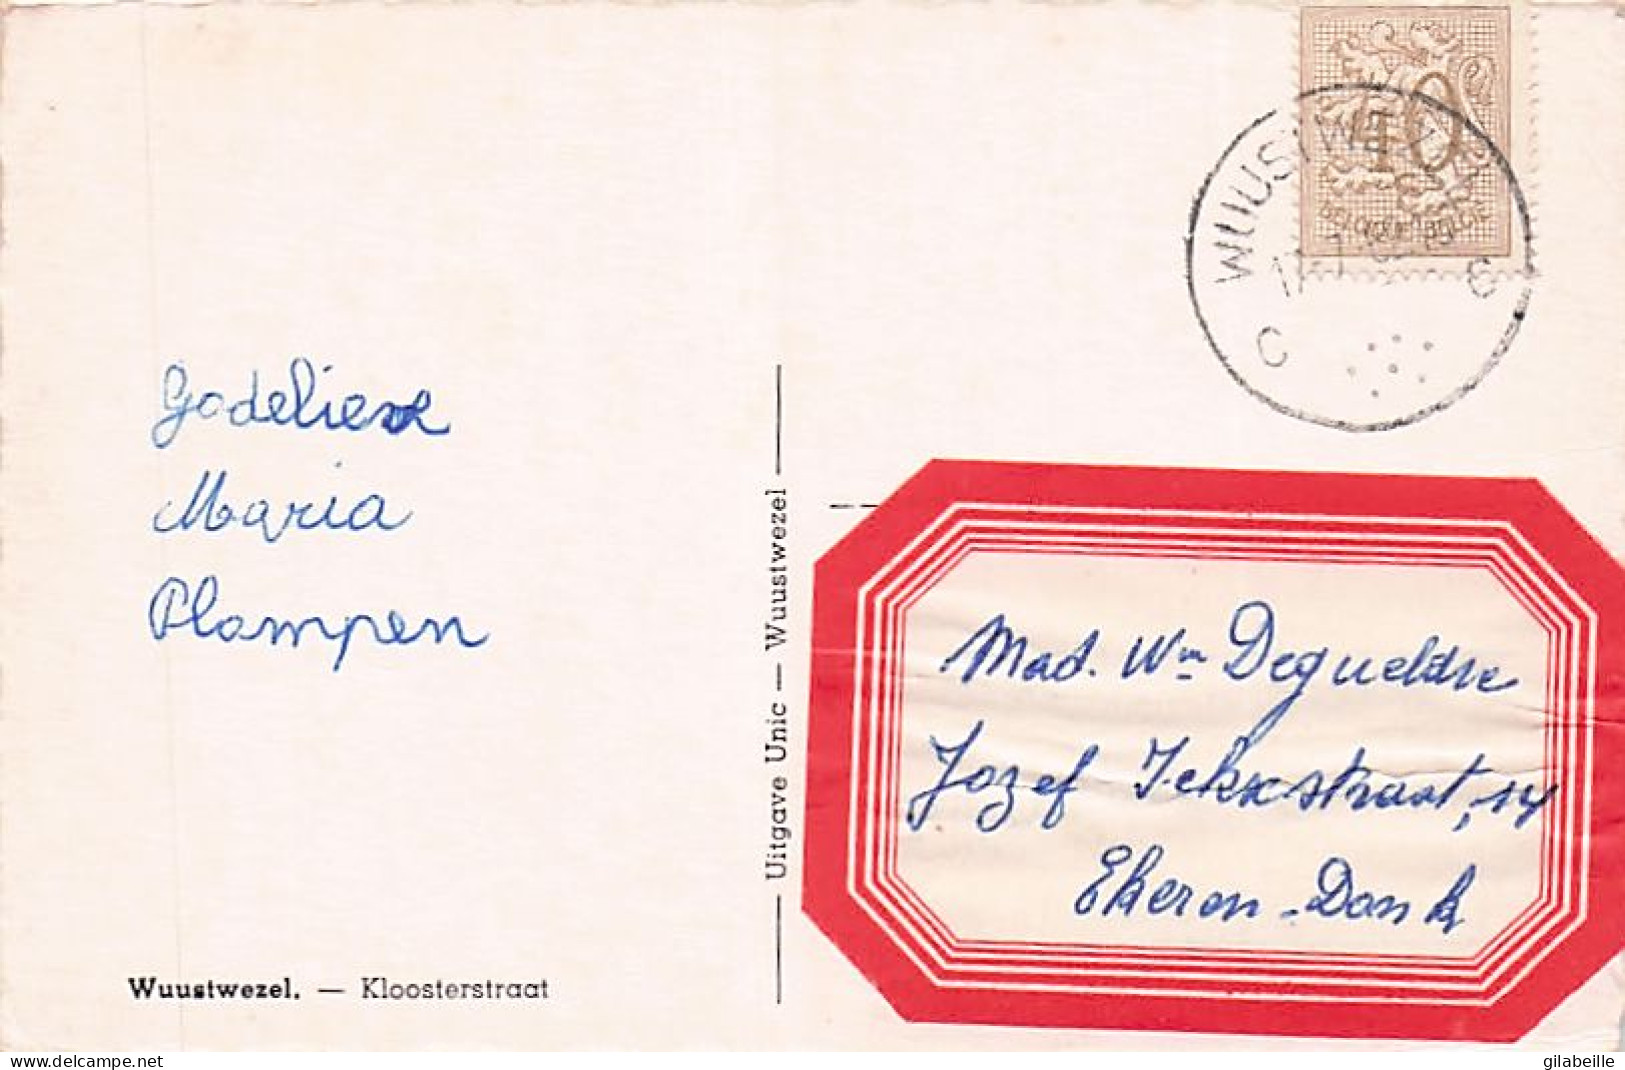 40
BELGIQUE BELGIË
WUUSTWEZEL
C
Godelieve
Maria
Plompen
Uitgave Unic — Wuustwezel
Mad. Wm Degueldre
Jozef Ickxstraat, 14
Ekeren-Donk
Wuustwezel. — Kloosterstraat
delcampe.net
gilabeille